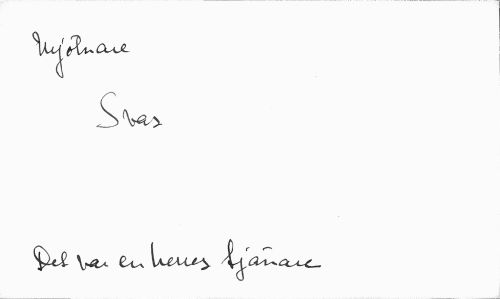 Mjölnare
Svar
Det var en herres tjänare